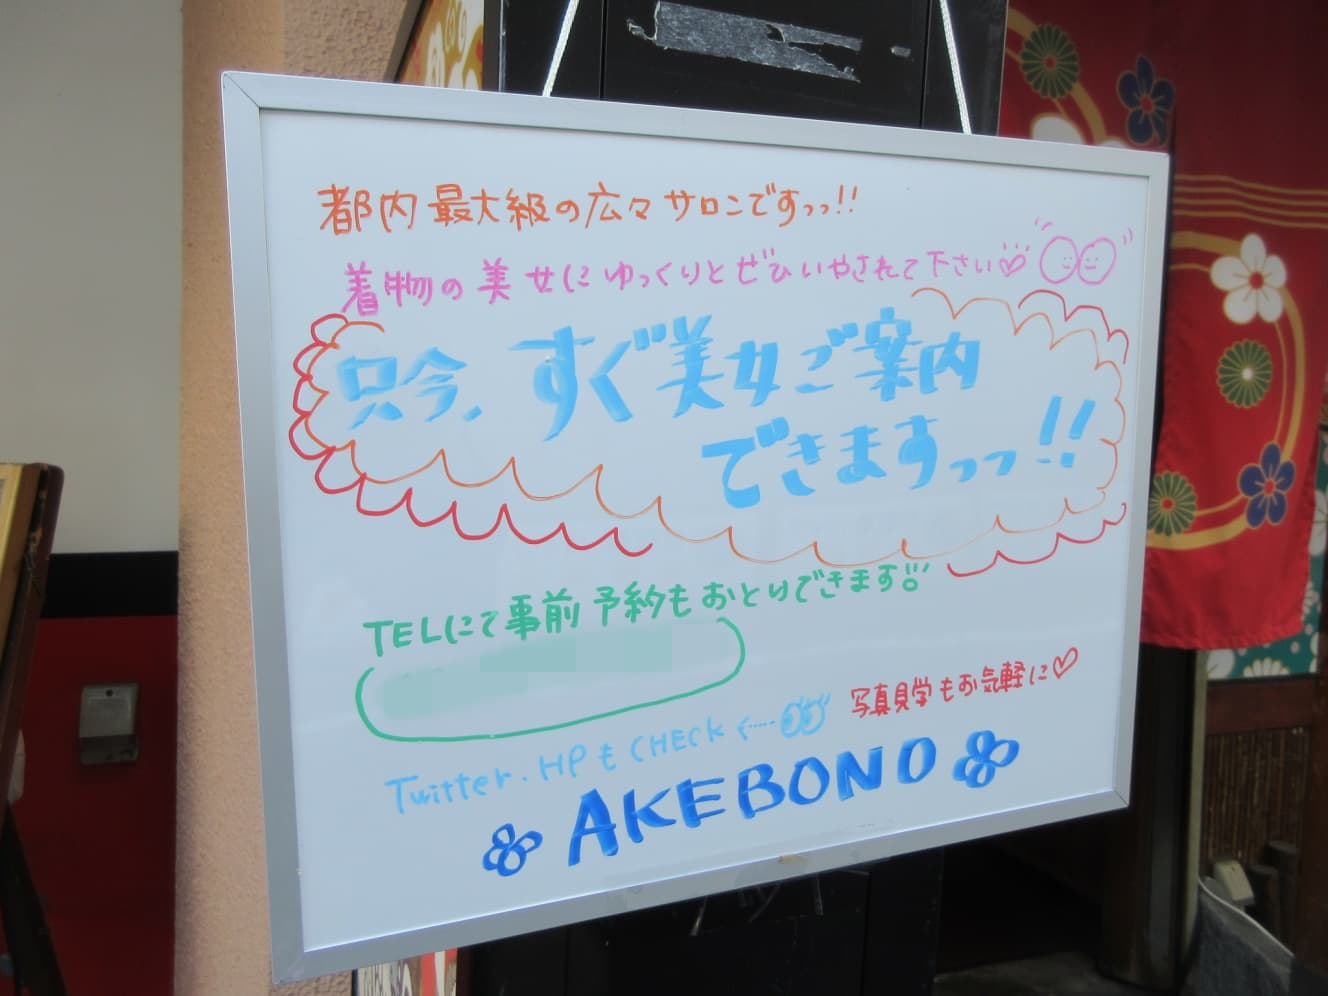 都内最大級の広々サロンですっっ!!
着物の美女にゆっくりとぜひいやされて下さい♡
只今、すぐ美女ご案内
できますっっ!!
TELにて事前予約もおとりできます!!
写真見学もお気軽に♡
Twitter・HPもCHECK
AKEBONO